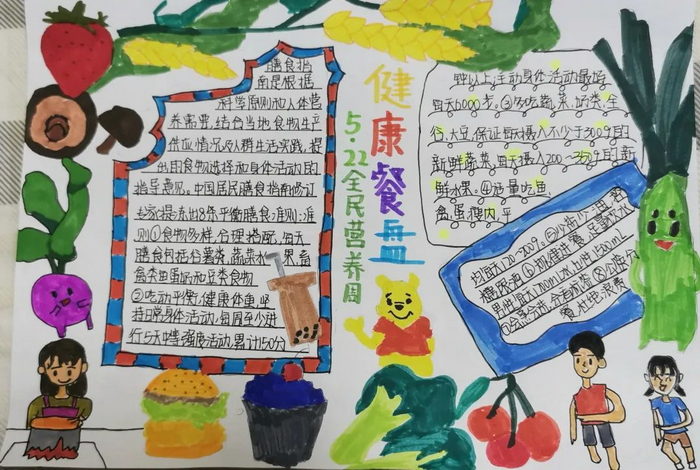 健康餐盘
5·22全民营养周
膳食指
南是根据
科学原则和人体营
养需要,结合当地食物生产
供应情况及人群生活实践,提
出的食物选择和身体活动的
指导意见。中国居民膳食指南修订
专家提出8条平衡膳食准则:准
则①食物多样,合理搭配,每天
膳食包括谷薯类 蔬菜水果 畜
禽类 蛋奶和豆类食物
②吃动平衡,健康体重,坚
持日常身体活动,每周至少进
行5天中等强度活动,累计150分
钟以上;主动身体活动最好
每天6000步。③多吃蔬果、奶类、全
谷、大豆,保证每天摄入不少于300g的
新鲜蔬菜,每天摄入200~350g的新
鲜水果。④适量吃鱼、
禽、蛋、瘦肉,平
均每天120-200g。⑤少盐少油,控
糖限酒 ⑥规律进餐,足量饮水